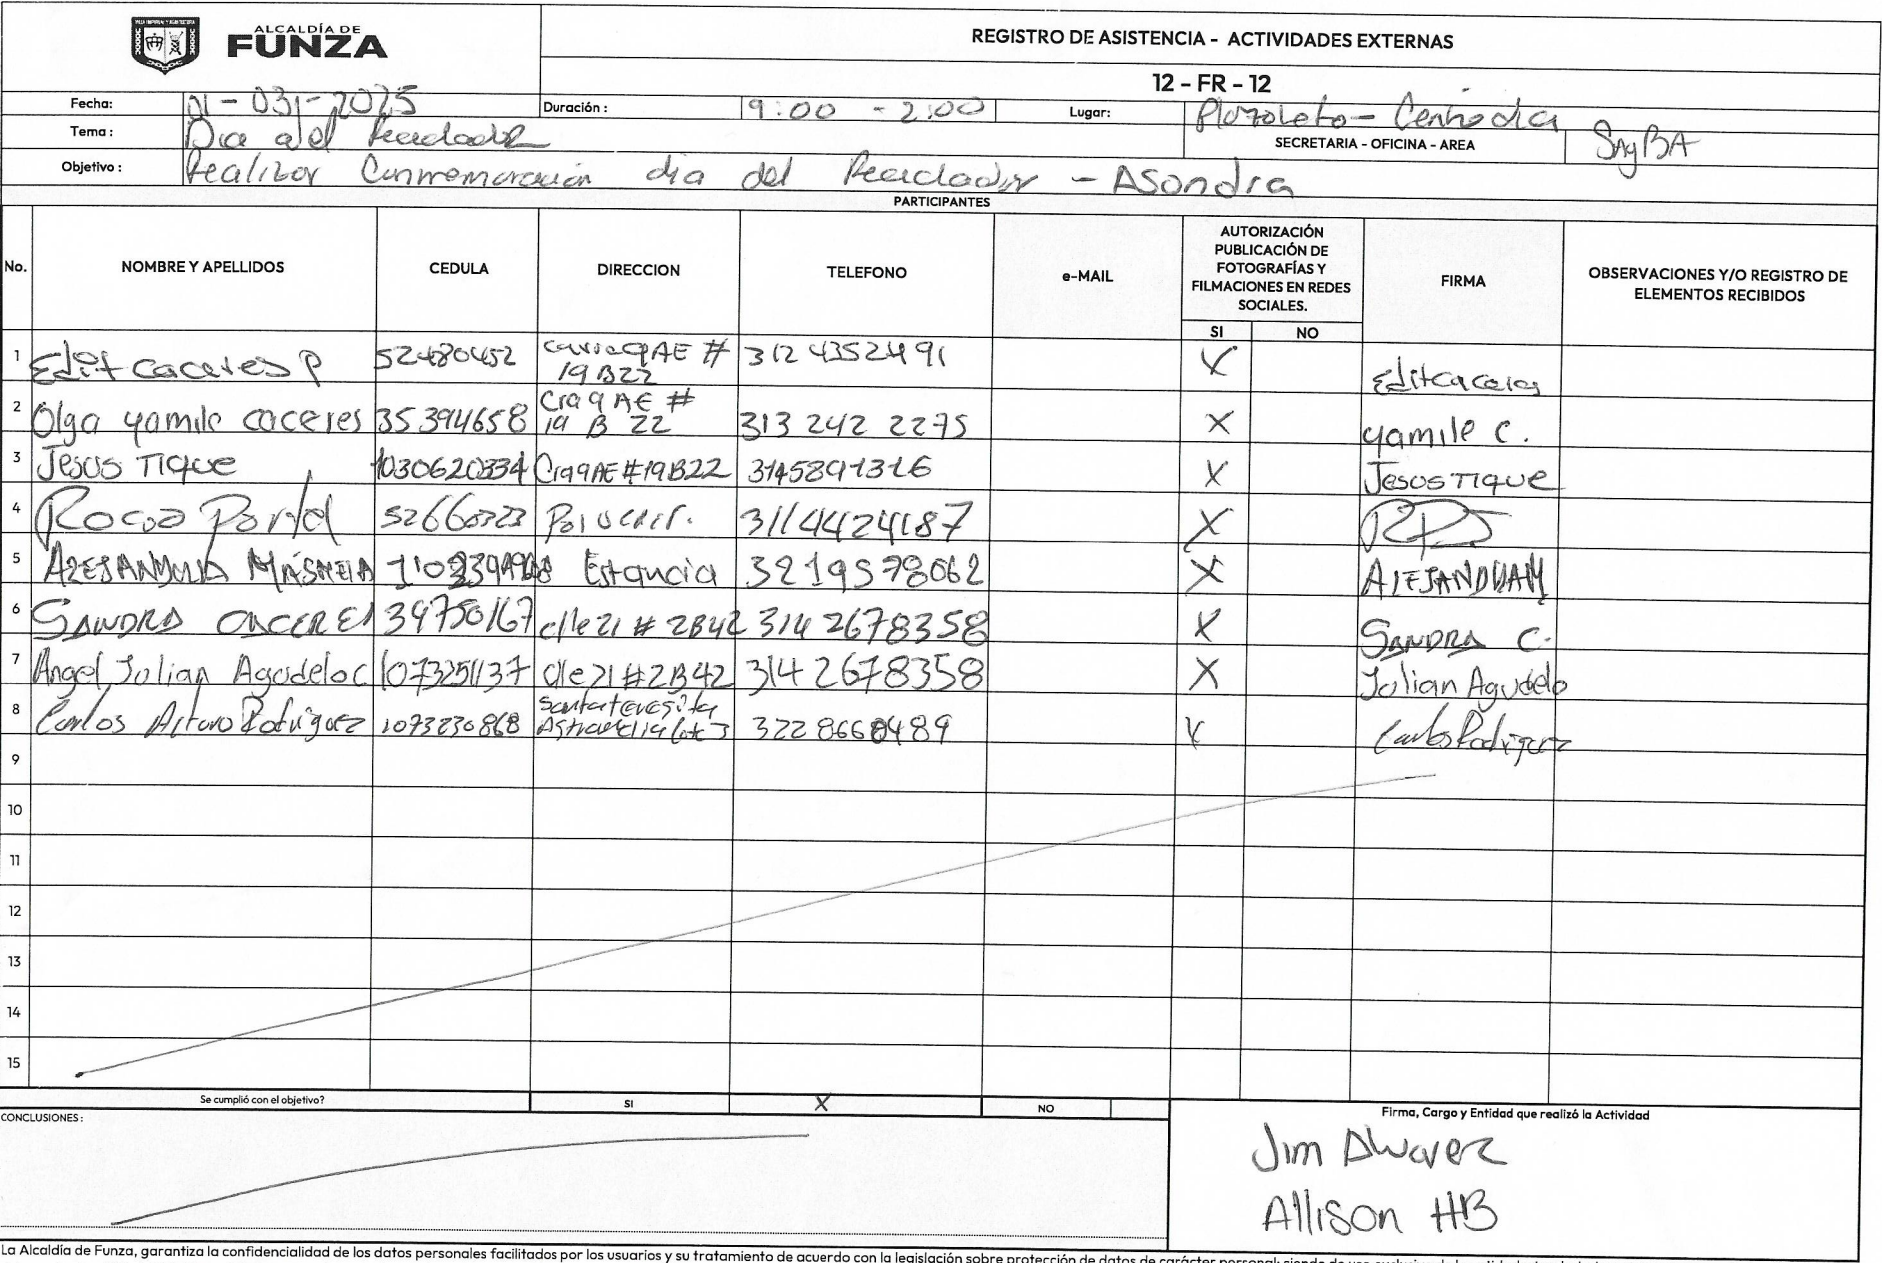 VILLA IMPERIAL Y ARQUITECTURA
ALCALDÍA DE
FUNZA
REGISTRO DE ASISTENCIA - ACTIVIDADES EXTERNAS
12 - FR - 12
Fecha: 01-031-2025 Duración : 9:00 - 2:00 Lugar: Plazoleta -
Tema : Dia del Reciclador SECRETARIA - OFICINA - AREA SAyBA
Objetivo : Realizar Conmemoración dia del Reciclador - ASondra
PARTICIPANTES
No. NOMBRE Y APELLIDOS CEDULA DIRECCION TELEFONO e-MAIL AUTORIZACIÓN PUBLICACIÓN DE FOTOGRAFÍAS Y FILMACIONES EN REDES SOCIALES. FIRMA OBSERVACIONES Y/O REGISTRO DE ELEMENTOS RECIBIDOS
SI NO
1 Edit caceres p 52480452 # 19 B22 312 4352491 X Edit caceres
2 Olga yamile caceres 35394658 Cra 9 AE # 19 B 22 313 242 2275 X yamile C.
3 Jesus Tique 1030620334 Cra9AE #19B22 3145891316 X Jesus Tique
4 Rocio 52660323 3114424187 X
5 Estancia 3219578062 X
6 SANDRA CACERES 39750167 clle 21 # 2B42 314 2678358 X SANDRA C.
7 Angel Julian Agudelo C 1073251137 Clle 21 #2B42 314 2678358 X Julian Agudelo
8 Carlos Arturo Rodriguez 1073230868 Santa teresita 3228660489 X Carlos Rodriguez
9
10
11
12
13
14
15
Se cumplió con el objetivo? SI X NO
CONCLUSIONES : Firma, Cargo y Entidad que realizó la Actividad
Jim Alvarez
Allison HB
La Alcaldía de Funza, garantiza la confidencialidad de los datos personales facilitados por los usuarios y su tratamiento de acuerdo con la legislación sobre protección de datos de carácter personal;